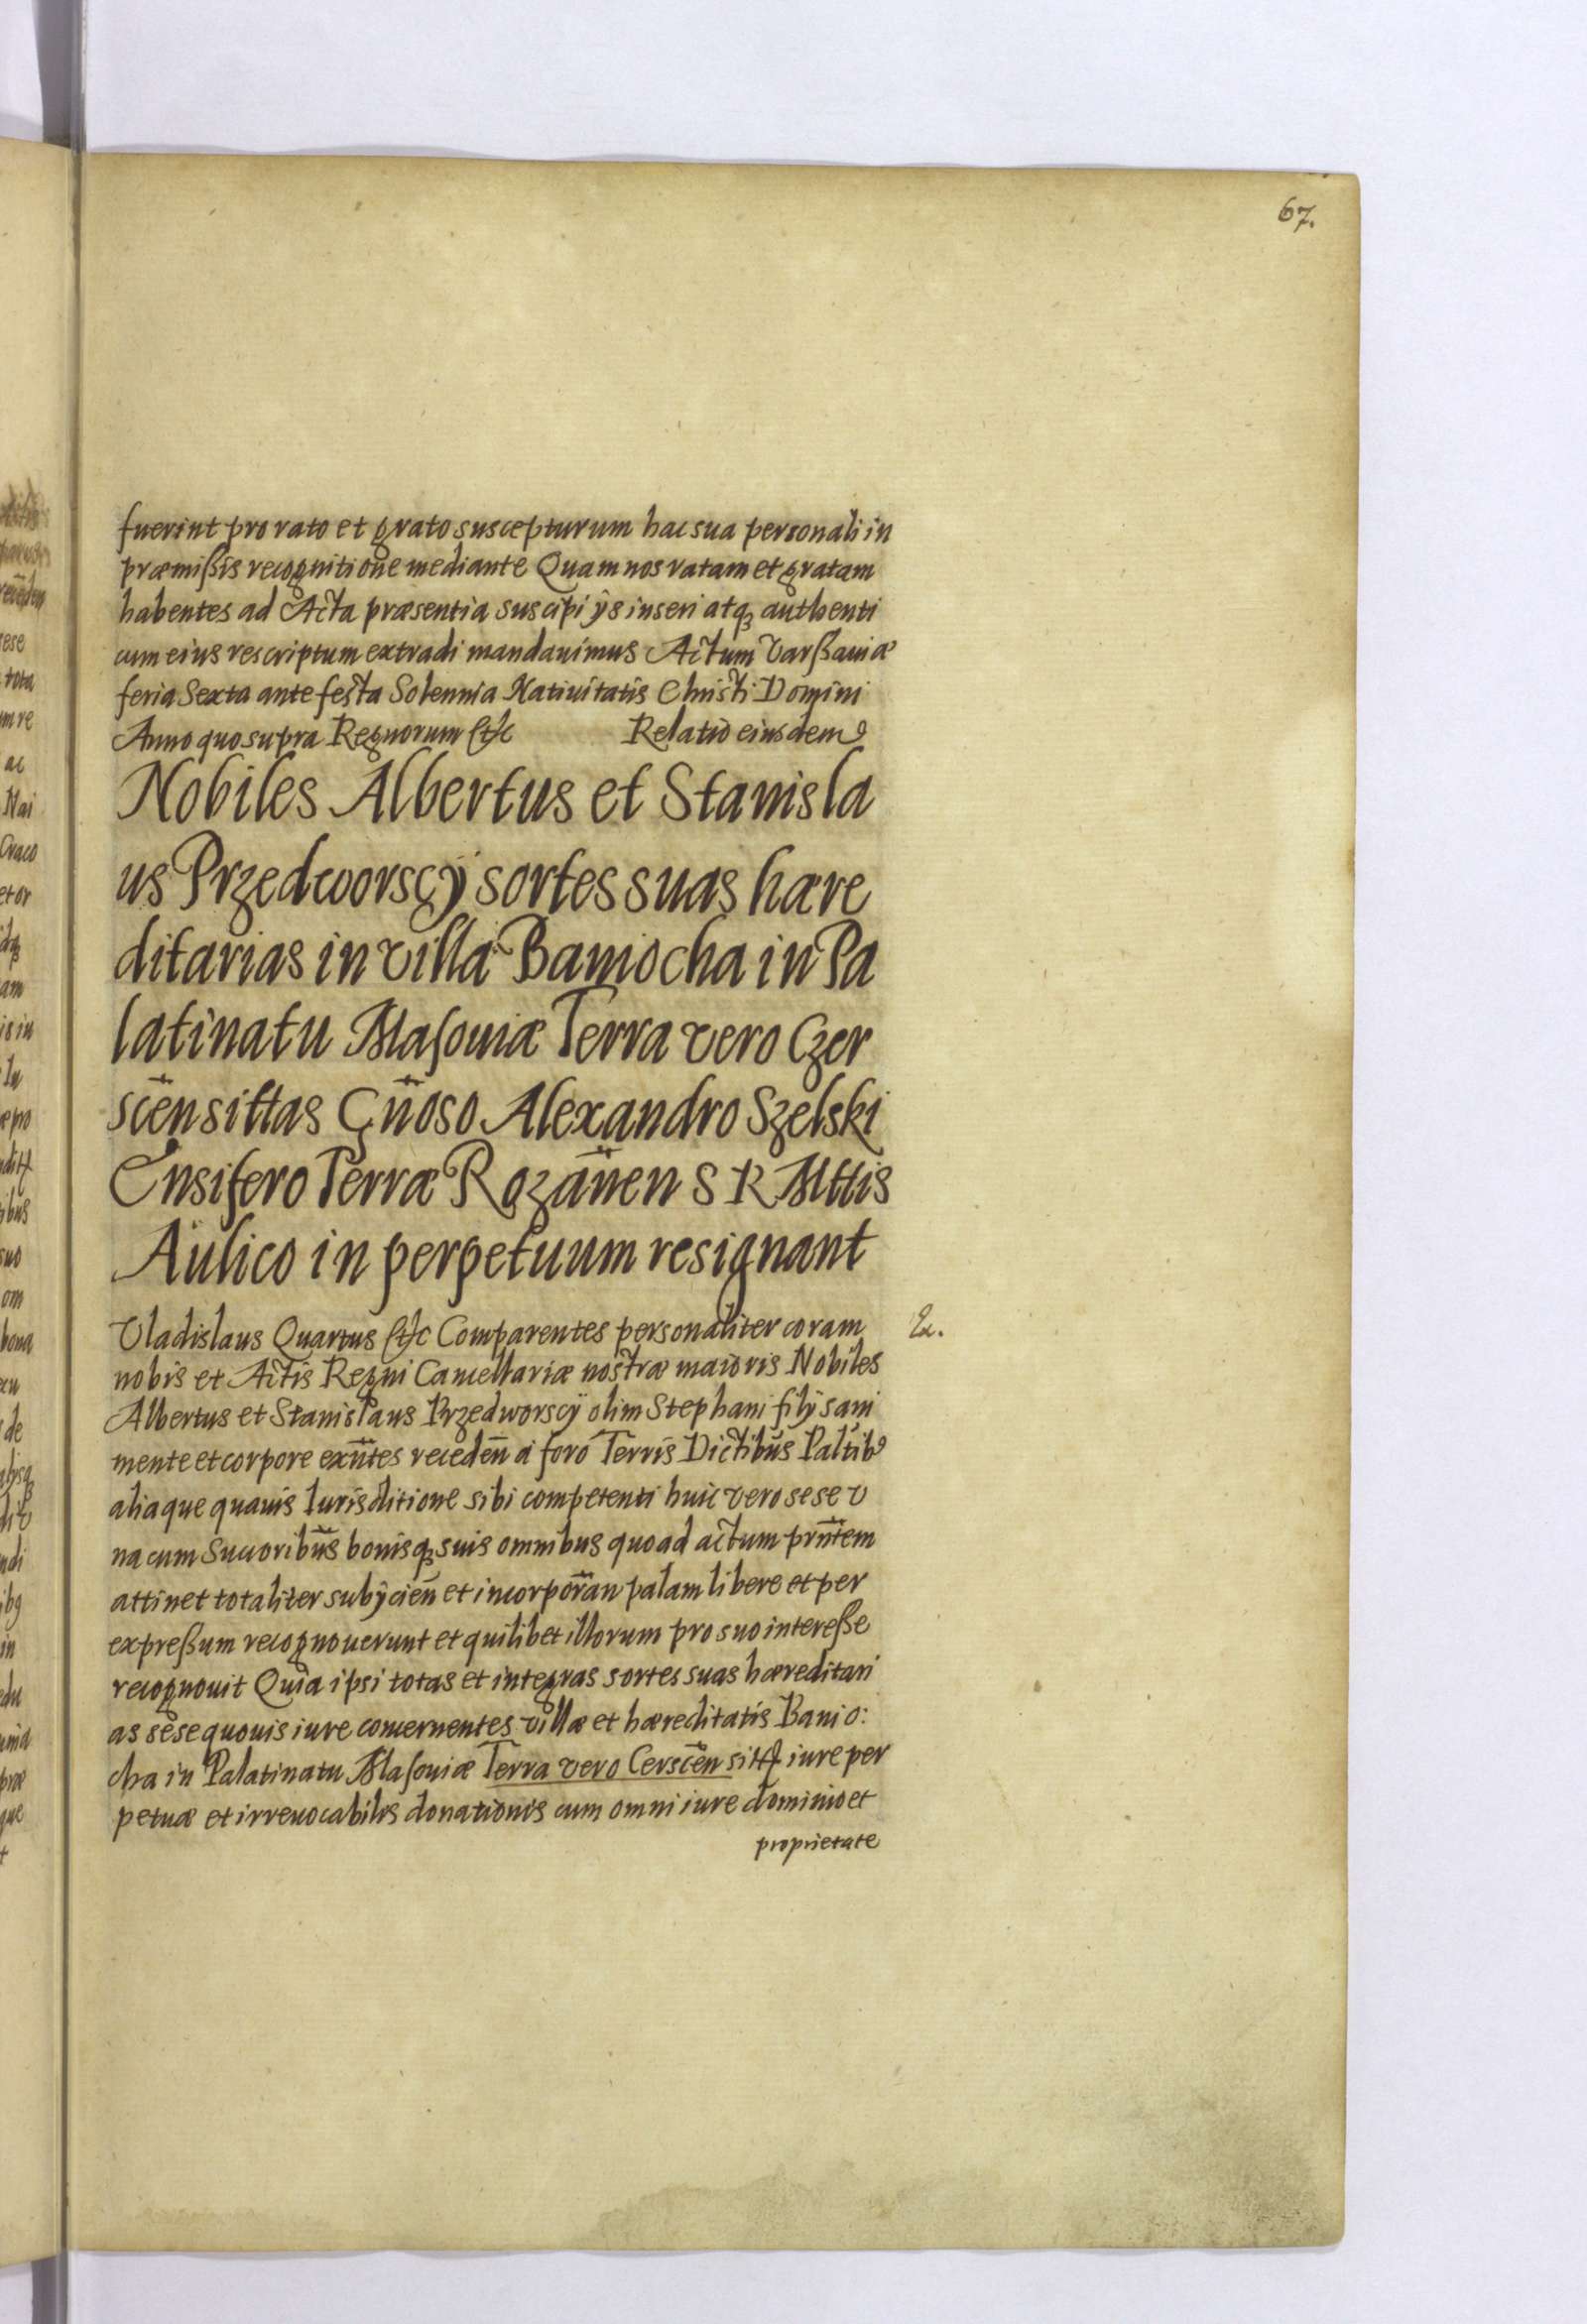 67.
fuerint pro rato et grato suscepturum hac sua personali in
præmißis recognitione mediante Quam nos ratam et gratam
habentes ad Acta præsentia suscipi ijs inseri atq authenti
cum eius rescriptum extradi mandauimus Actum Varßauiæ
feria Sexta ante festa Solennia Natiuitatis Christi Domini
Anno quo supra Regnorum etc Relatio eiusdem
Nobiles Albertus et Stanisla
us Przedworscÿ sortes suas hære
ditarias in villa Baniocha in Pa
latinatu Masouiæ Terra vero Czer
scen̄ sittas Gn̄oso Alexandro Szelski
Ensifero Terræ Rozān̄en S R Mttis
Aulico in perpetuum resignant
Vladislaus Quartus etc Comparentes personaliter coram
Ex.
nobis et Actis Regni Cancellariæ nostræ maioris Nobiles
Albertus et Stanislaus Przedworscÿ olim Stephani filij sani
mente et corpore exn̄tes receden̄ a foro Terris Dictibus Paltib9
aliaque quauis Iurisditione sibi competenti huic vero sese v
na cum Succoribus bonisq suis omnibus quoad actum prn̄tem
attinet totaliter subijcien̄ et incorporan̄ palam libere et per
expreßum recognouerunt et quilibet illorum pro suo intereße
recognouit Quia ipsi totas et integras sortes suas hæreditari
as sese quouis iure concernentes villæ et hæreditatis Banio:
cha in Palatinatu Masouiæ Terra vero Cerscen̄ sitt iure per
petuæ et irreuocabilis donationis cum omni iure dominio et
proprietate